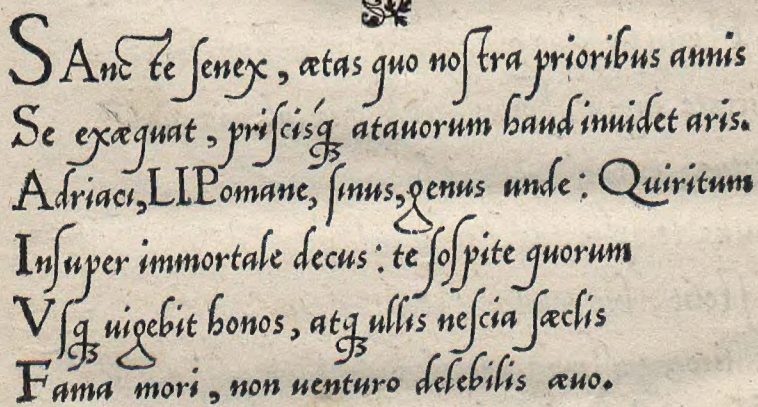 SAncte ſenex, ætas quo noſtra prioribus annis
Se exæquat, priſcisq́; atauorum haud inuidet aris.
Adriaci, LIPomane, ſinus, genus unde: Quiritum
Inſuper immortale decus: te ſoſpite quorum
Vſq; uigebit honos, atq; ullis neſcia ſæclis
Fama mori, non uenturo delebilis æuo.